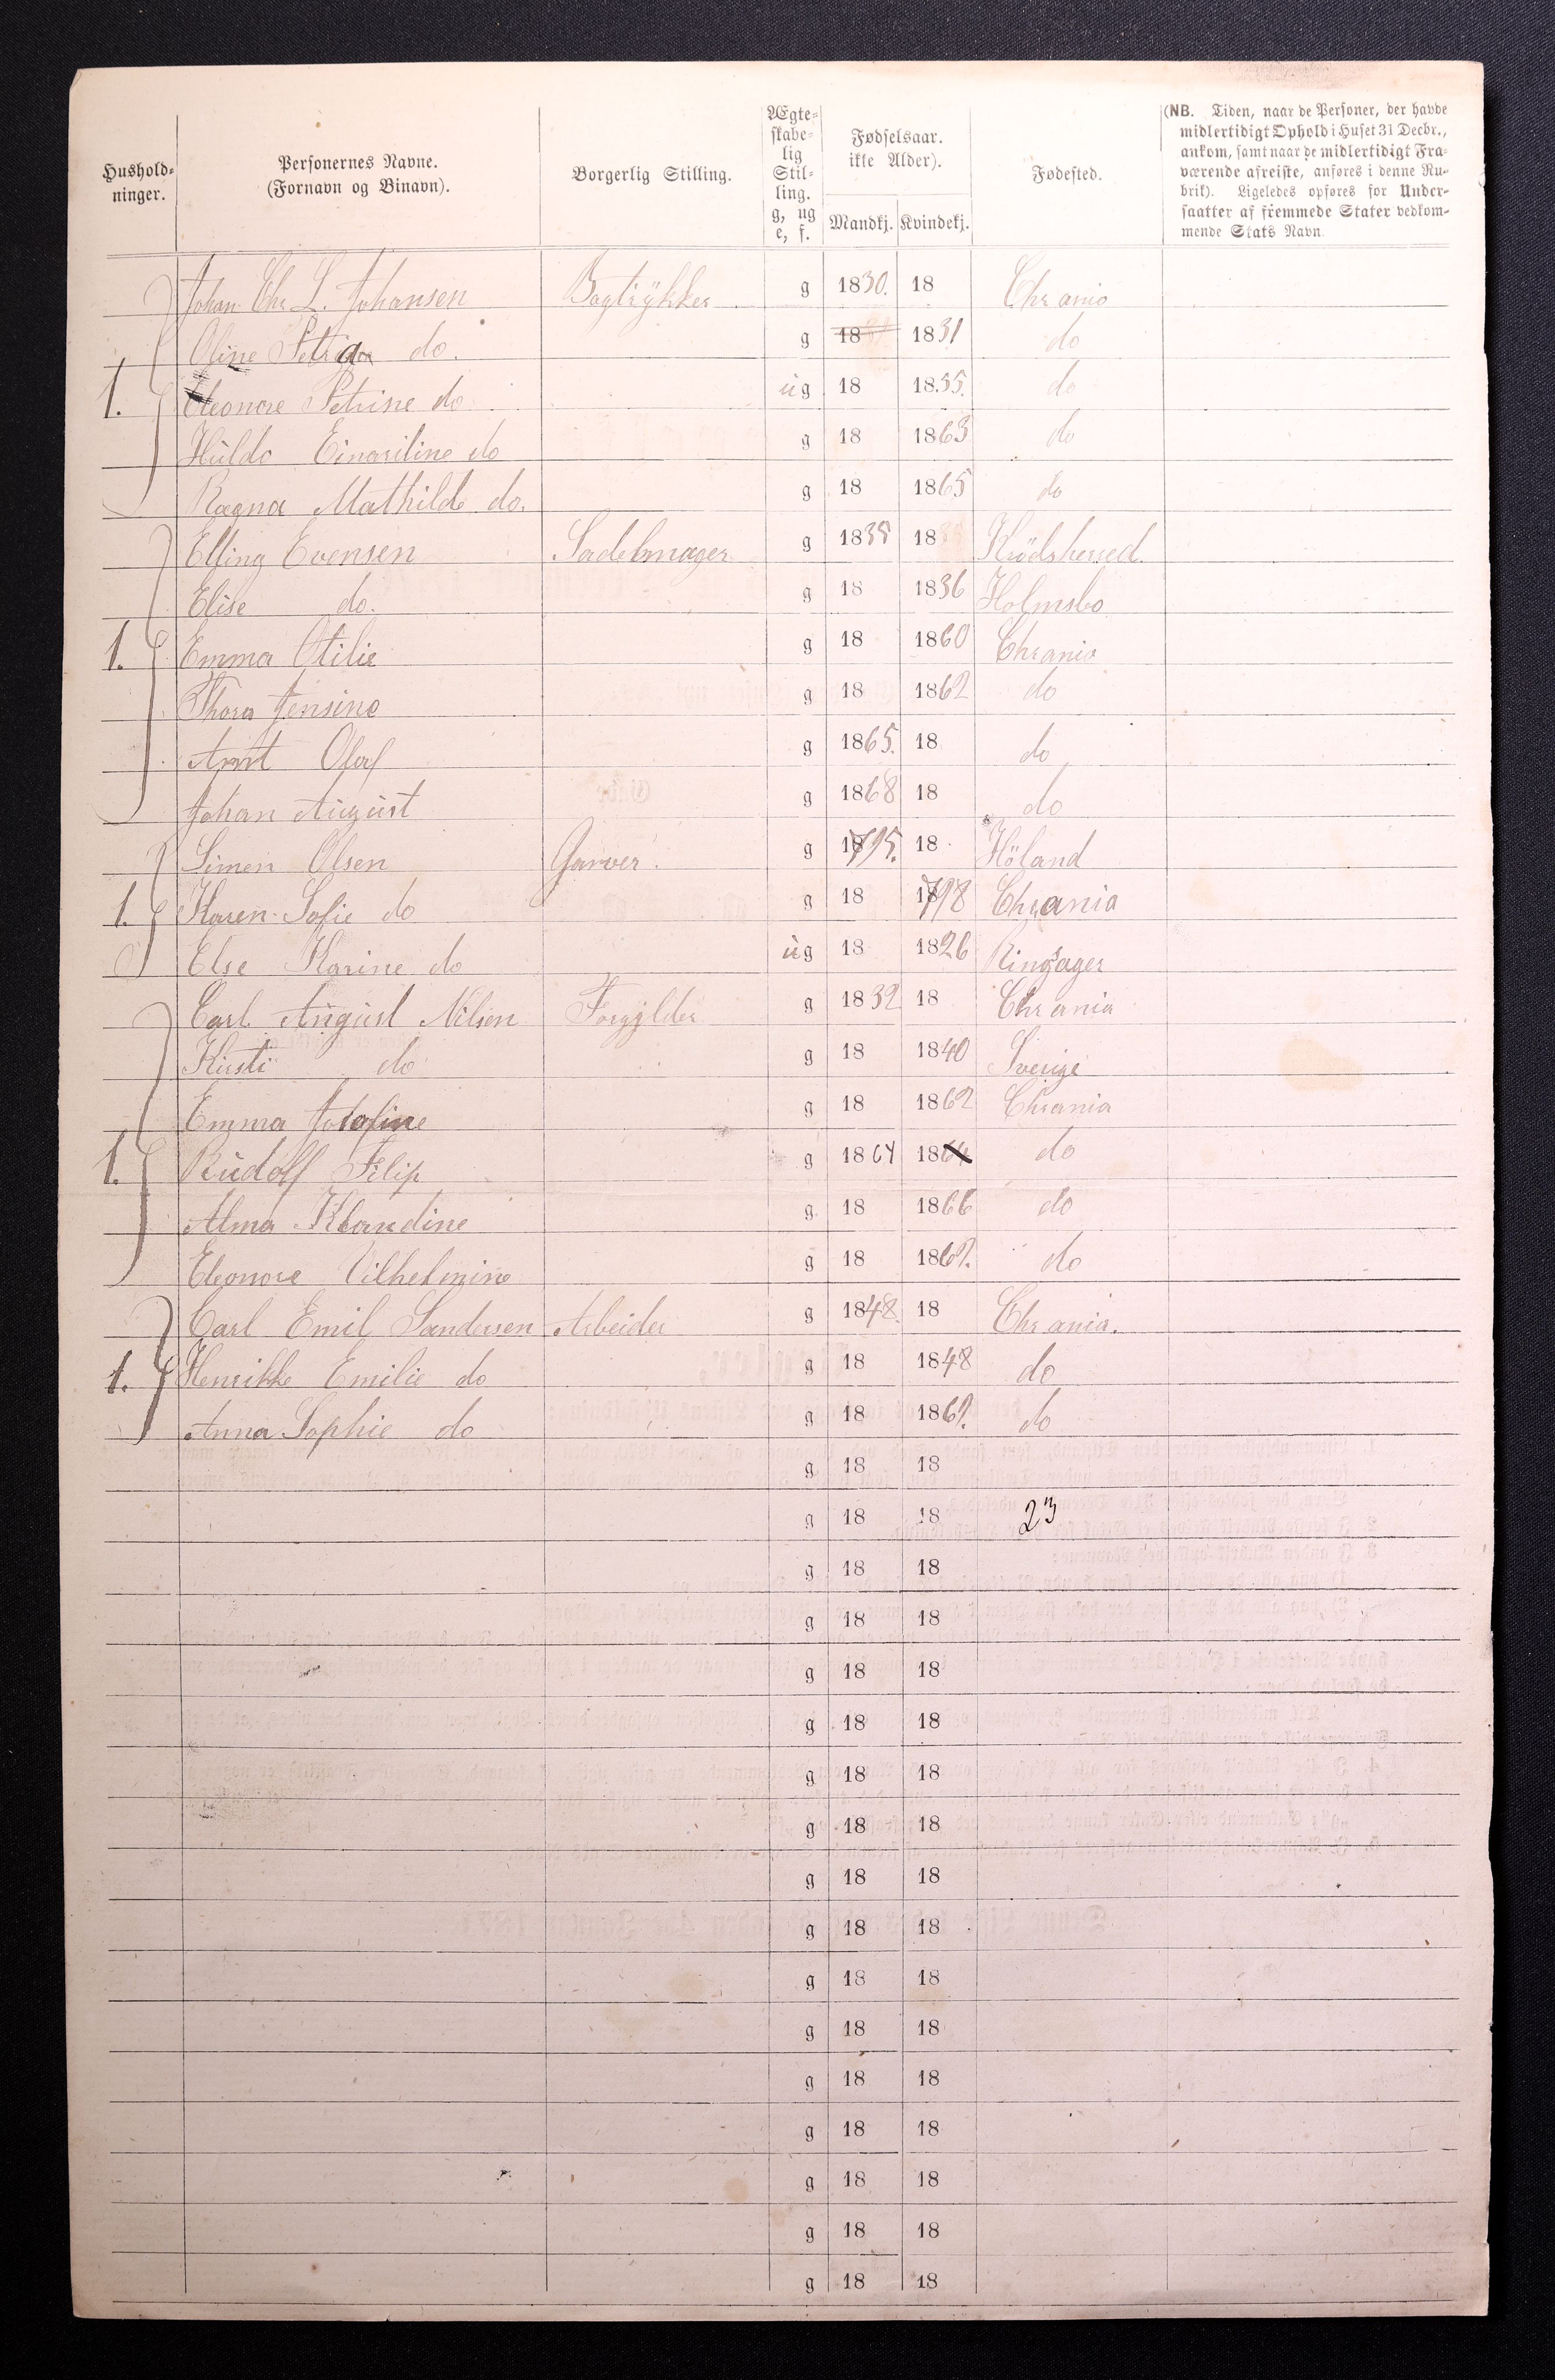 Hushold-
ninger.
Personernes Navne.
(Fornavn og Binavn).
Borgerlig Stilling.
Ægte-
skabe-
lig
Stil-
ling.
g, ug
e, f.
Fødselsaar.
ikke Alder).
Mandkj. Kvindekj.
Fødested.
(NB. Tiden, naar de Personer, der havde
midlertidigt Ophold i Huset 31 Decbr.,
ankom, samt naar de midlertidigt Fra-
værende afreiste, anføres i denne Ru-
brik). Ligeledes opføres for Under-
saatter af fremmede Stater vedkom-
mende Stats Navn.
Johan Chr. L. Johansen Bogtrykker g 1830. 18 Chrania
Oline Petrea do. g 18 1831 do
1. Eleonore Petrine do ug 18 1855. do
Huldo Einariline do g 18 1863 do
Ragna Mathilde do. g 18 1865 do
Elling Evensen Sadelmager g 1835 18 Krödsherred
Elise do. g 18 1836 Holmsbo
1. Emma Otilie g 18 1860 Chrania
Thora Jensine g 18 1862 do
Arnt Olaf g 1865. 18 do
Johan August g 1868 18 do
Simen Olsen Garver. g 1795. 18 Höland
1. Karen Sofie do g 18 1798 Chrania
Else Karine do ug 18 1826 Ringsager
Carl August Nilsen Forgylder g 1832 18 Chrania
Kirsti do g 18 1840 Sverige
Emma g 18 1862 Chrania
1. Rudolf Filip g 1864 1864 do
Alma Klaudine g 18 1866 do
Eleonore Vilhelmine g 18 1869. do
Carl Emil Sandersen Arbeider g 1848. 18 Chrania.
1. Henrikke Emilie do g 18 1848 do
Anna Sophie do g 18 1869. do
g 18 18
g 18 18 23
g 18 18
g 18 18
g 18 18
g 18 18
g 18 18
g 18 18
g 18 18
g 18 18
g 18 18
g 18 18
g 18 18
g 18 18
g 18 18
g 18 18
g 18 18